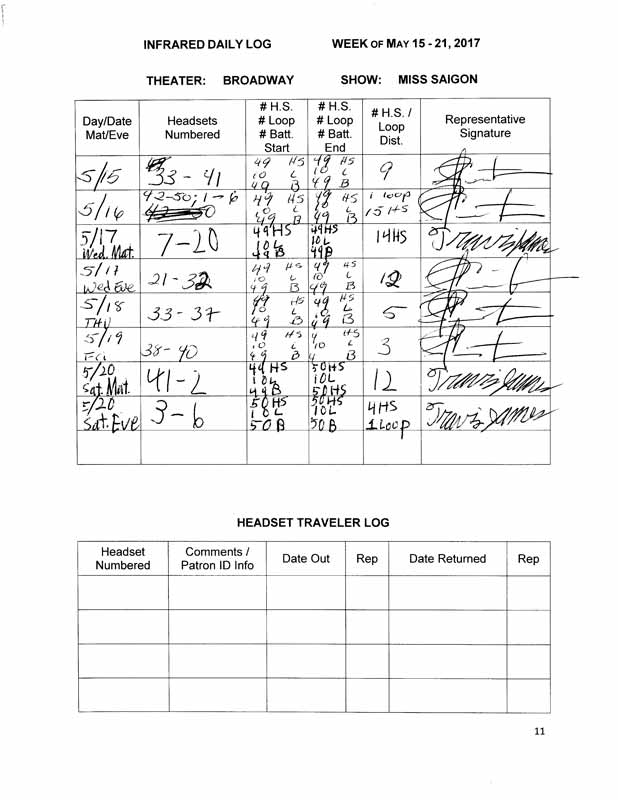 INFRARED DAILY LOG WEEK OF MAY 15 - 21, 2017
THEATER: BROADWAY SHOW: MISS SAIGON
Day/Date Mat/Eve Headsets Numbered # H.S. # Loop # Batt. Start # H.S. # Loop # Batt. End # H.S. / Loop Dist. Representative Signature
5/15 33 - 41 49 HS 10 L 49 B 49 HS 10 L 49 B 9
5/16 42-50; 1-6 49 HS 10 L 49 B 49 HS 10 L 49 B 1 loop 15 HS
5/17 Wed. Mat. 7-20 49HS 10L 49B 49HS 10L 49B 14HS Travis James
5/17 Wed Eve 21-32 49 HS 10 L 49 B 49 HS 10 L 49 B 12
5/18 THU 33-37 49 HS 10 L 49 B 49 HS 10 L 49 B 5
5/19 Fri 38-40 49 HS 10 L 49 B 4 HS 10 L 4 B 3
5/20 Sat. Mat. 41-2 49HS 10L 49B 50HS 10L 50HS 12 Travis James
5/20 Sat. Eve 3-6 50HS 10L 50B 50HS 10L 50B 4HS 1 Loop Travis James
HEADSET TRAVELER LOG
Headset Numbered Comments / Patron ID Info Date Out Rep Date Returned Rep
11